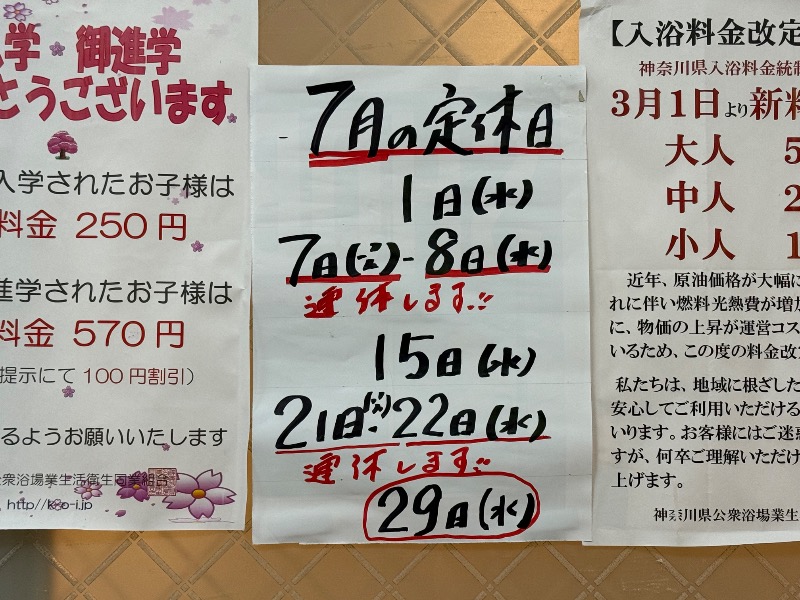 学 御進学
とうございます
入学されたお子様は
料金 250円
進学されたお子様は
料金 570円
提示にて100円割引）
るようお願いいたします
公衆浴場業生活衛生同業組合
http//k-o-i.jp
7月の定休日
1日(水)
7日(火)-8日(水)
連休します!!
15日(水)
21日(火)-22日(水)
連休します!!
29日(水)
【入浴料金改定
神奈川県入浴料金統制
3月1日より新料
大人 5
中人 2
小人 1
近年、原油価格が大幅に
れに伴い燃料光熱費が増加
に、物価の上昇が運営コス
いるため、この度の料金改定
私たちは、地域に根ざした
安心してご利用いただける
いります。お客様にはご迷惑
すが、何卒ご理解いただけ
上げます。
神奈川県公衆浴場業生